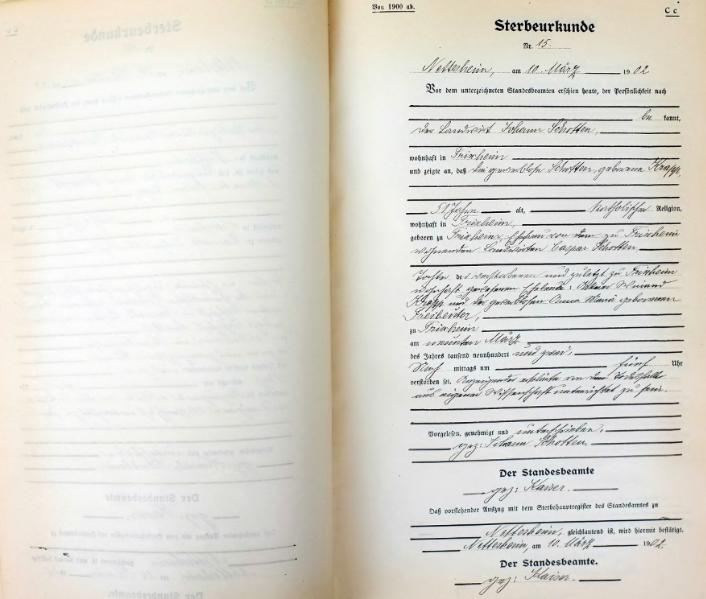 Von 1900 ab.
C c
Sterbeurkunde
Nr. 15.
Nettersheim, am 10. März 1902
Vor dem unterzeichneten Standesbeamten erschien heute, der Persönlichkeit nach
be kannt,
der Landwirt Johann Schotten,
wohnhaft in Frixheim
und zeigte an, daß die gewerblose Schotten, geborene Krapp,
Jahre alt, katholischer Religion,
wohnhaft in Frixheim,
geboren zu Frixheim, Ehefrau von dem zu Frixheim
wohnenden Caspar Schotten
Tochter des verstorbenen und zuletzt zu Frixheim
wohnhaft gewesenen Eheleute:
Krapp und der gewerblosen Anna Maria geborenen
zu Frixheim
am neunten März
des Jahres tausend neunhundert und zwei,
Nach mittags um fünf Uhr
verstorben sei. Anzeigender erklärte von dem Todesfalle
aus eigener Wissenschaft unterrichtet zu sein.
Vorgelesen, genehmigt und unterschrieben,
gez: Johann Schotten.
Der Standesbeamte
gez: Kaiser.
Daß vorstehender Auszug mit dem Sterbehauptregister des Standesamts zu
gleichlautend ist, wird hiermit bestätigt.
am 10. März 1902.
Der Standesbeamte.
gez: Kaiser.